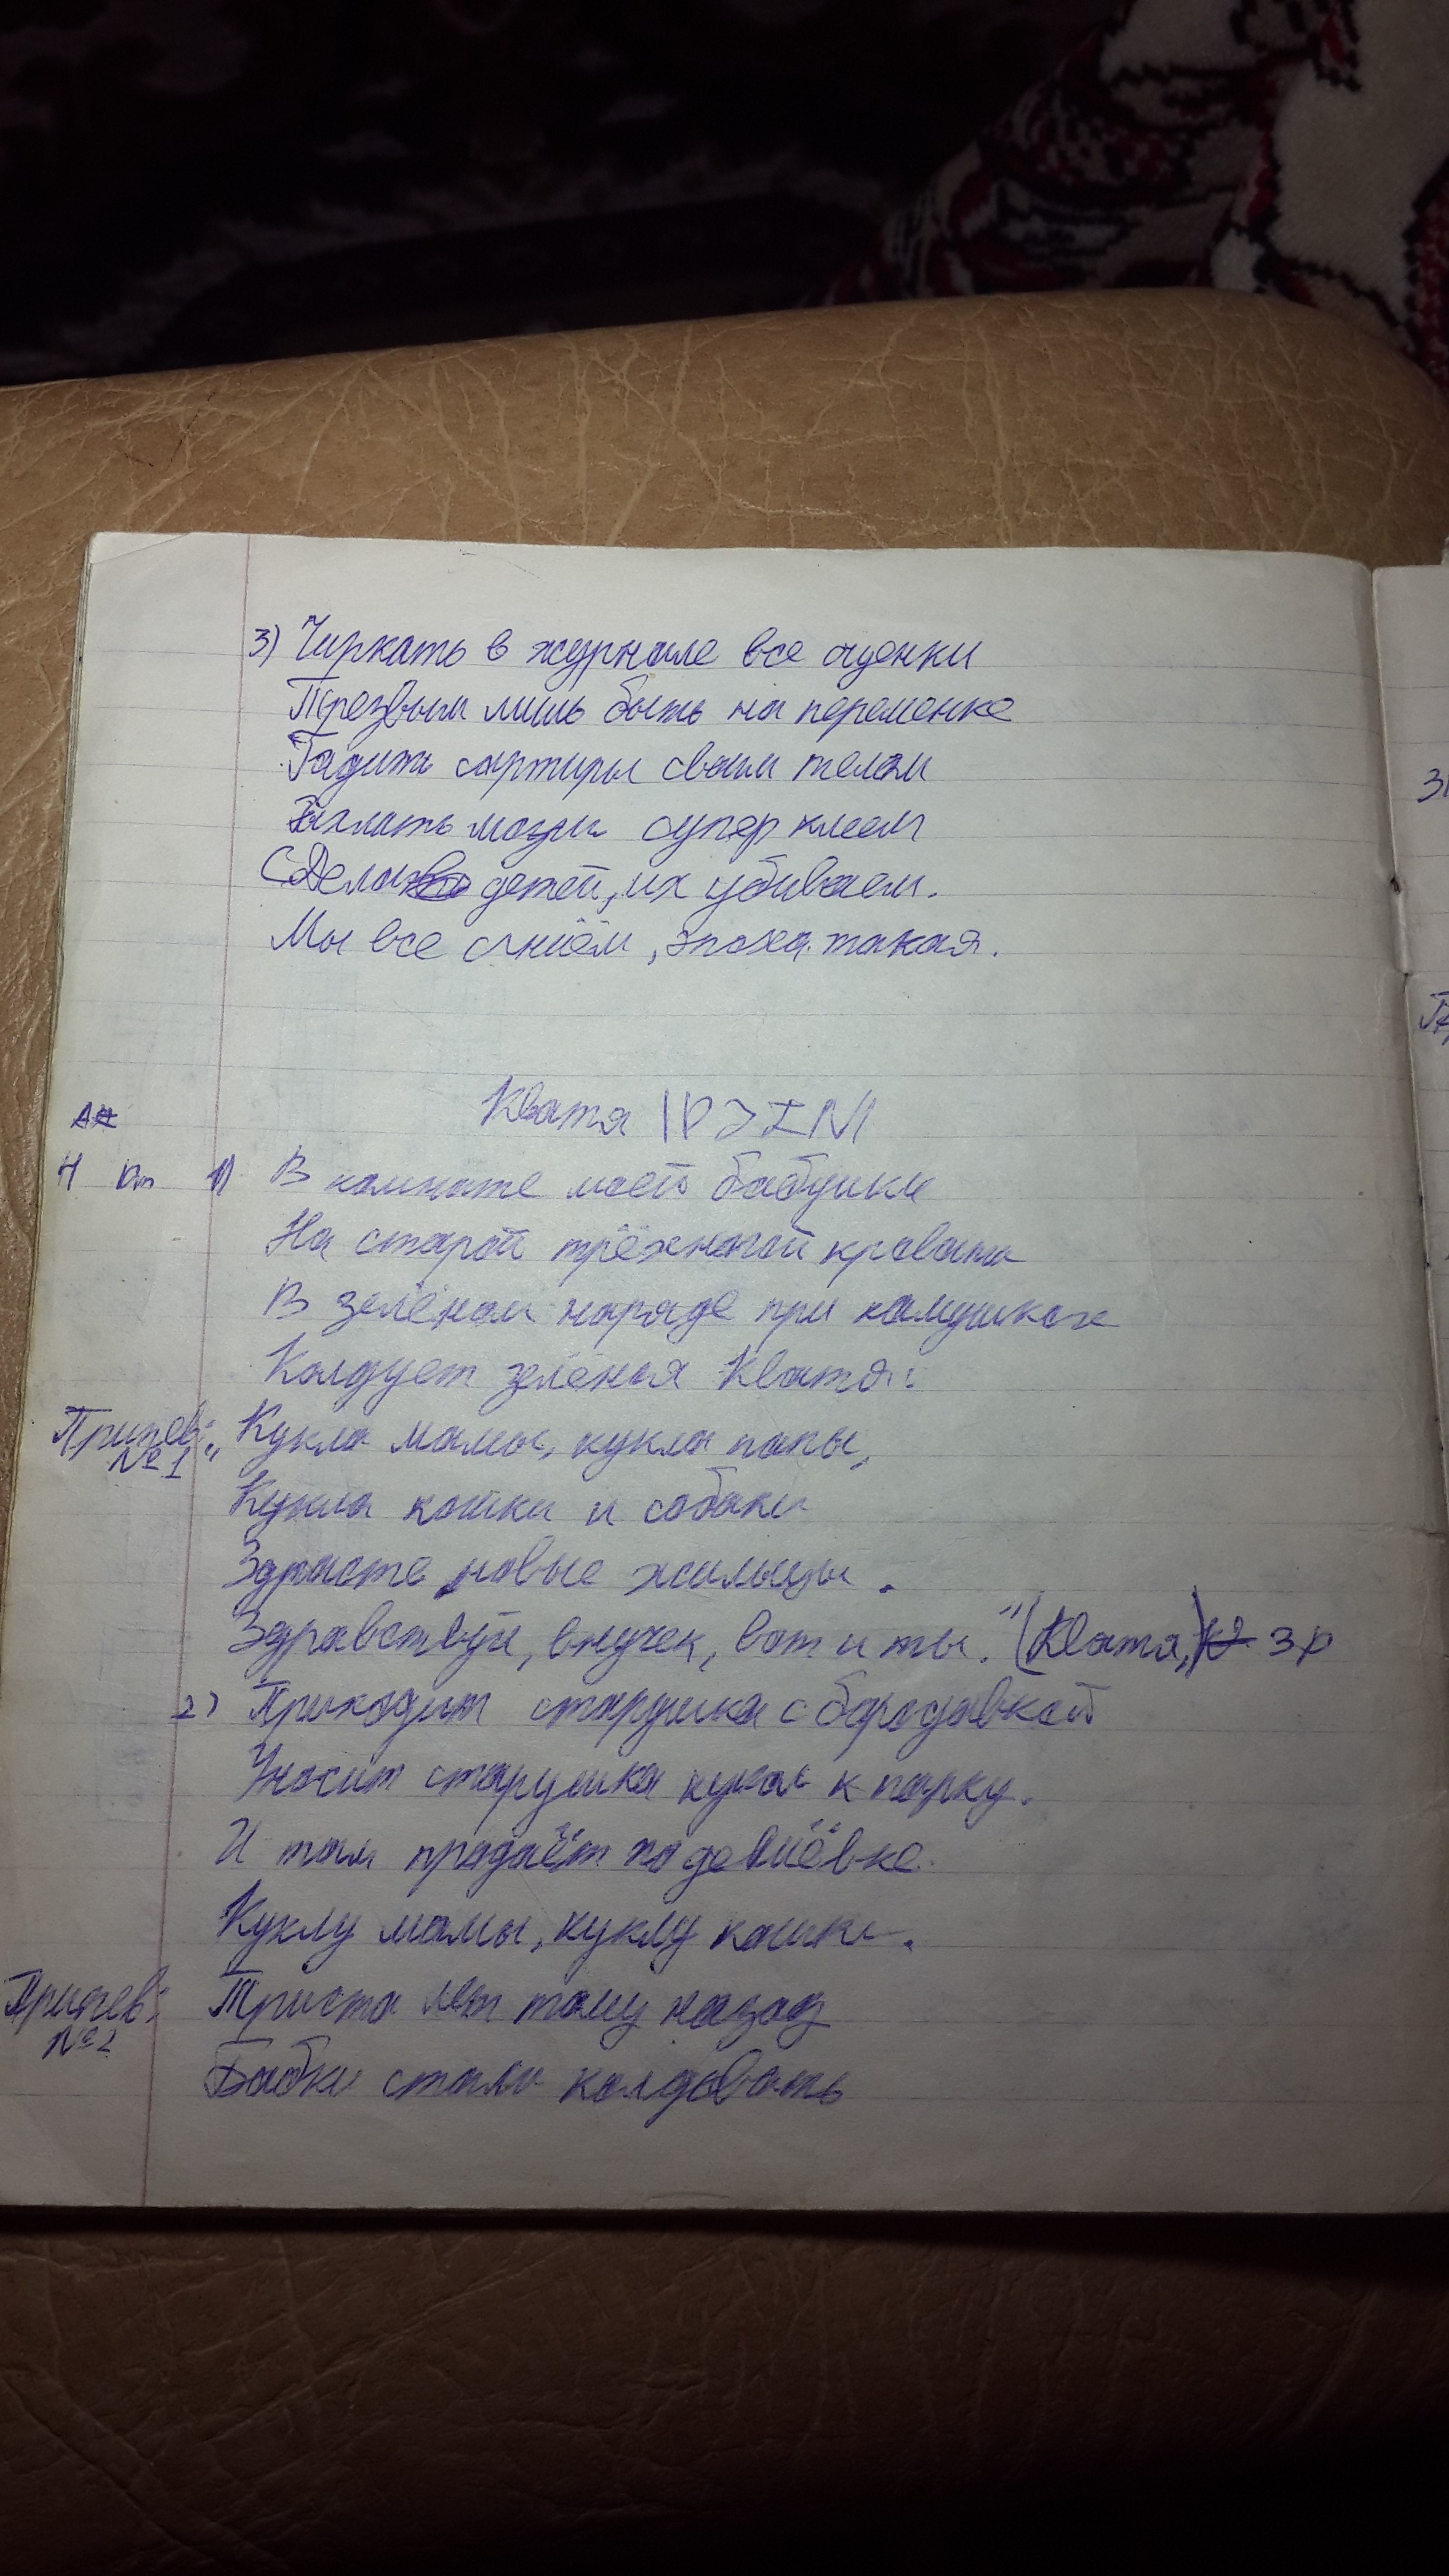 3) Чиркать в журнале все оценки
Трезвым лишь быть на переменке
Гадить сортиры своим телом
мозги супер клеем
детей, их убиваем.
Мы все сгниём, эпоха такая.
Кватя
1) В комнате моей бабушки
На старой трёхногой кровати
В зелёном наряде при камушках
Колдует зелёная Кватя:
Припев: №1 " Кукла мамы, кукла папы,
Кукла кошки и собаки
Здрасте новые жильцы.
Здравствуй, внучек, вот и ты." (Кватя,) 3 р
2) Приходит старушка с бородавкой
Уносит старушка кукол к парку.
И там продаёт по дешёвке
Куклу мамы, куклу кошки.
Припев: №2 Триста лет тому назад
Бабки стали колдовать